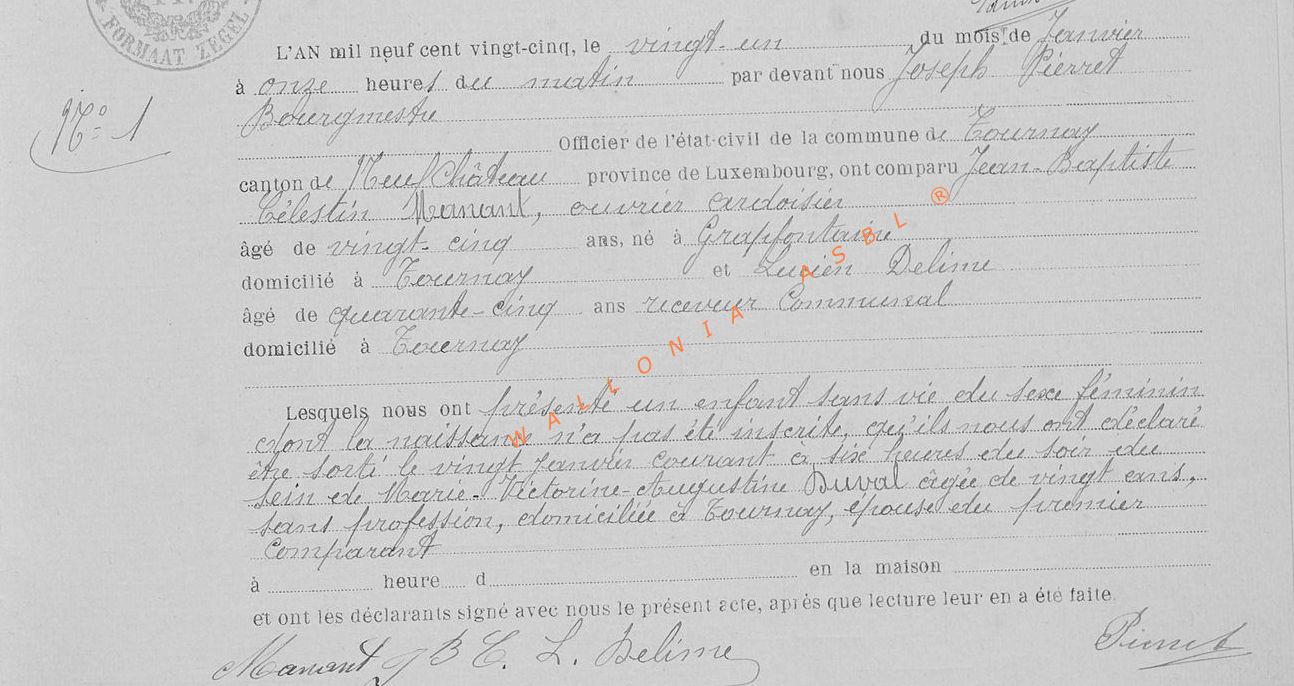 FORMAAT ZEGEL
L'AN mil neuf cent vingt-cinq, le vingt-un du mois de Janvier
à onze heures du matin par devant nous Joseph Pierret
N° 1
Bourgmestre
Officier de l'état-civil de la commune de Tournay
canton de Neufchâteau province de Luxembourg, ont comparu Jean-Baptiste
Célestin Manant, ouvrier ardoisier
âgé de vingt-cinq ans, né à Grapfontaine
domicilié à Tournay et Lucien Delime
âgé de quarante-cinq ans receveur Communal
domicilié à Tournay
Lesquels nous ont présenté un enfant sans vie du sexe féminin
dont la naissance n'a pas été inscrite, qu'ils nous ont déclaré
être sorti le vingt Janvier courant à six heures du soir du
sein de Marie-Victorine-Augustine Duval âgée de vingt ans,
sans profession, domiciliée à Tournay, épouse du premier
Comparant
à heure d en la maison
et ont les déclarants signé avec nous le présent acte, après que lecture leur en a été faite.
Manant J B C. L. Delime Pierret
WALLONIA ASBL ®